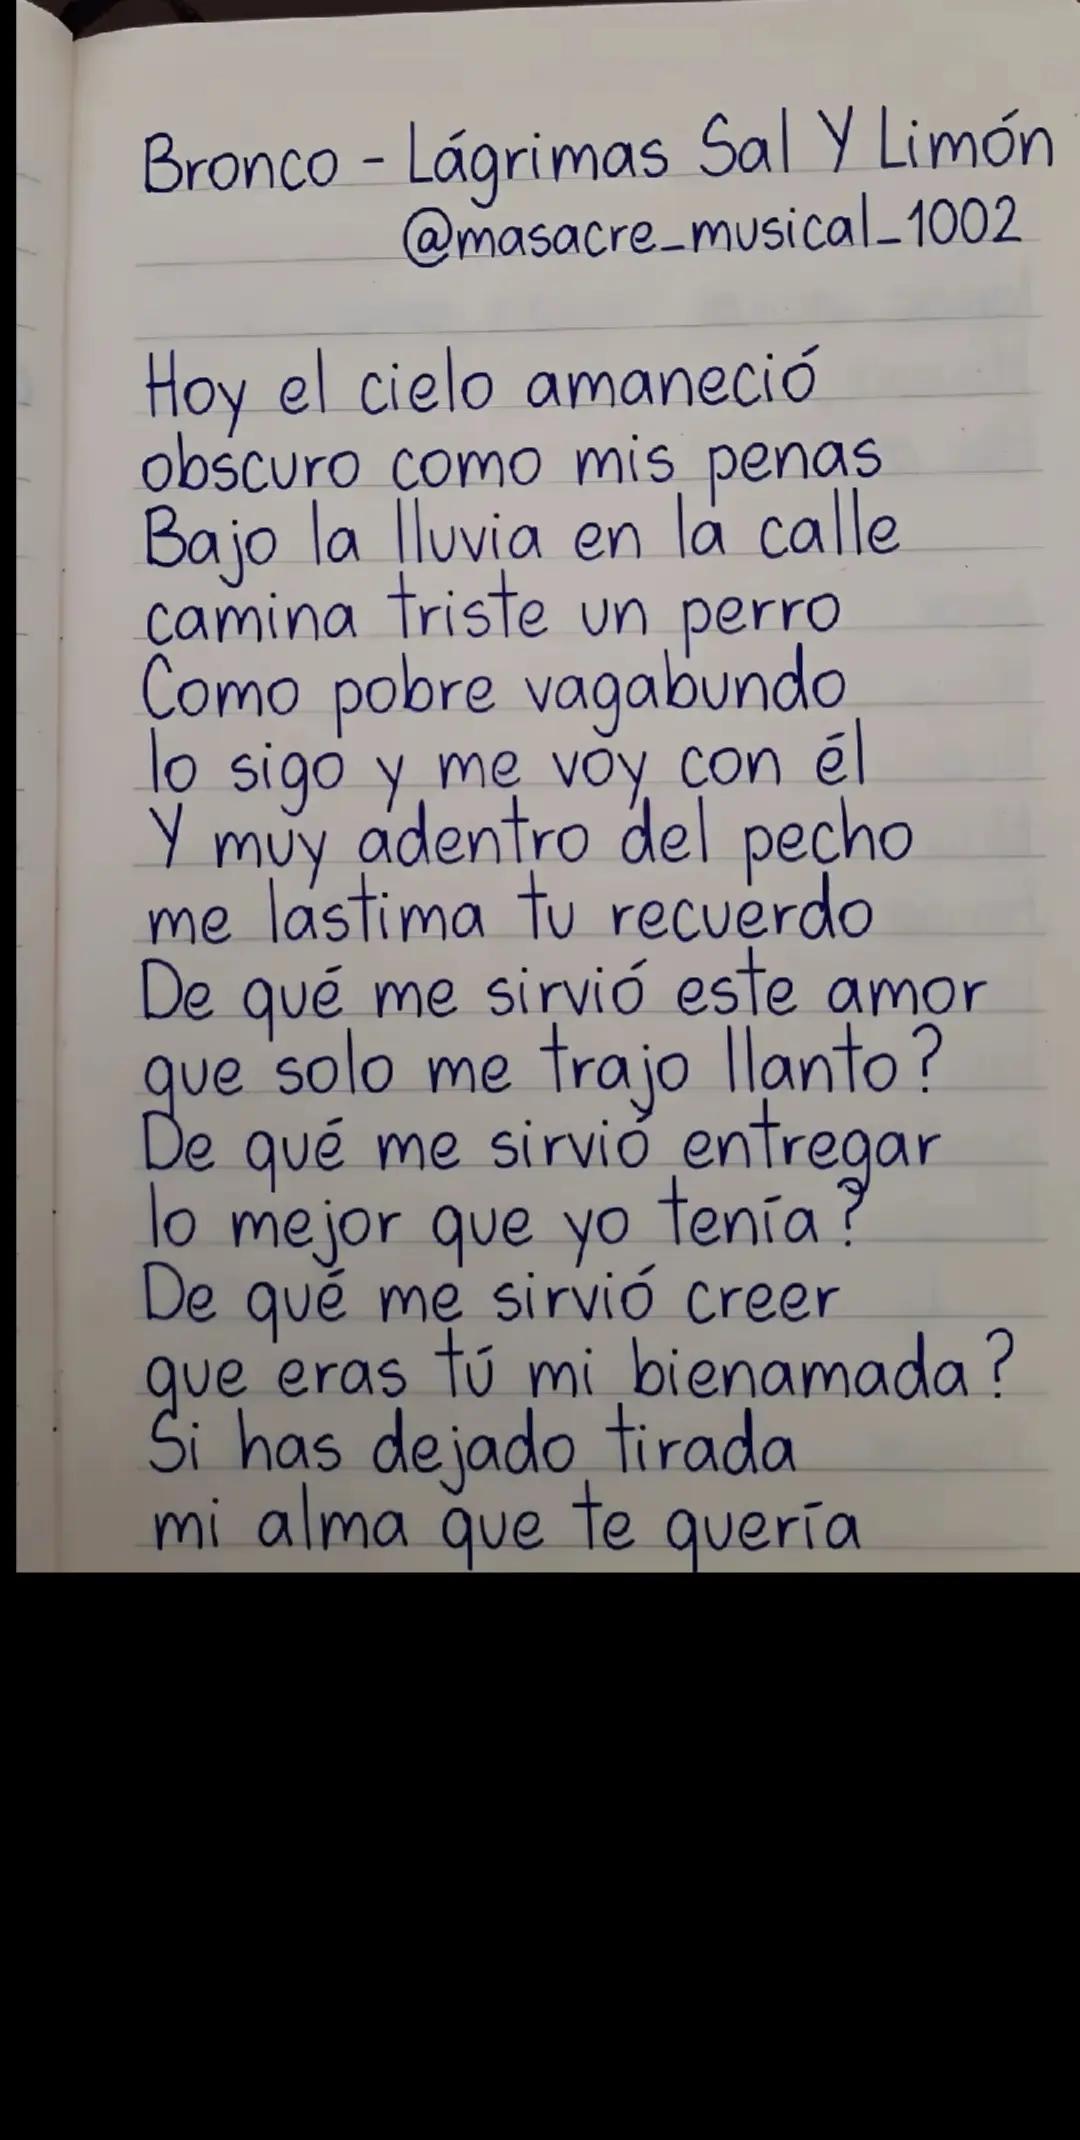 Bronco - Lágrimas Sal Y Limón
@masacre_musical_1002
Hoy el cielo amaneció
obscuro como mis penas
Bajo la lluvia en la calle
camina triste un perro
Como pobre vagabundo
lo sigo y me voy con él
Y muy adentro del pecho
me lastima tu recuerdo
De qué me sirvió este amor
que solo me trajo llanto?
De qué me sirvió entregar
lo mejor que yo tenía?
De qué me sirvió creer
que eras tú mi bienamada?
Si has dejado tirada
mi alma que te quería